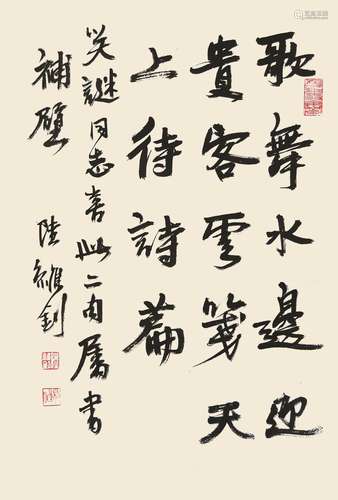 歌舞水邊迎
貴客雲箋天
上待詩篇
笑謎同志喜此二句屬書
補壁 陸維釗